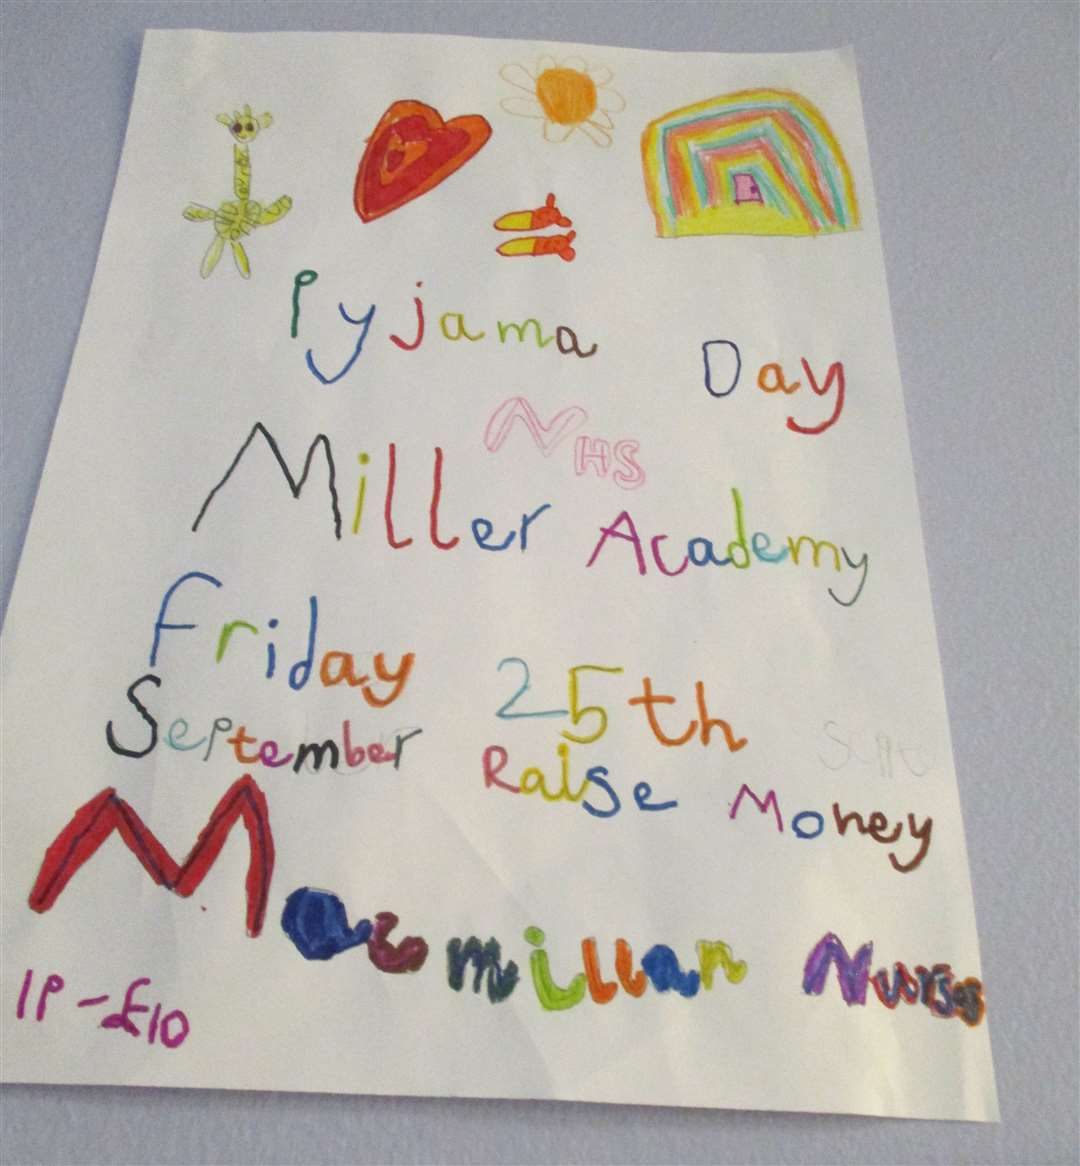 Pyjama Day
NHS
Miller Academy
Friday 25th
September Raise Money
Macmillan Nurses
1P - £10